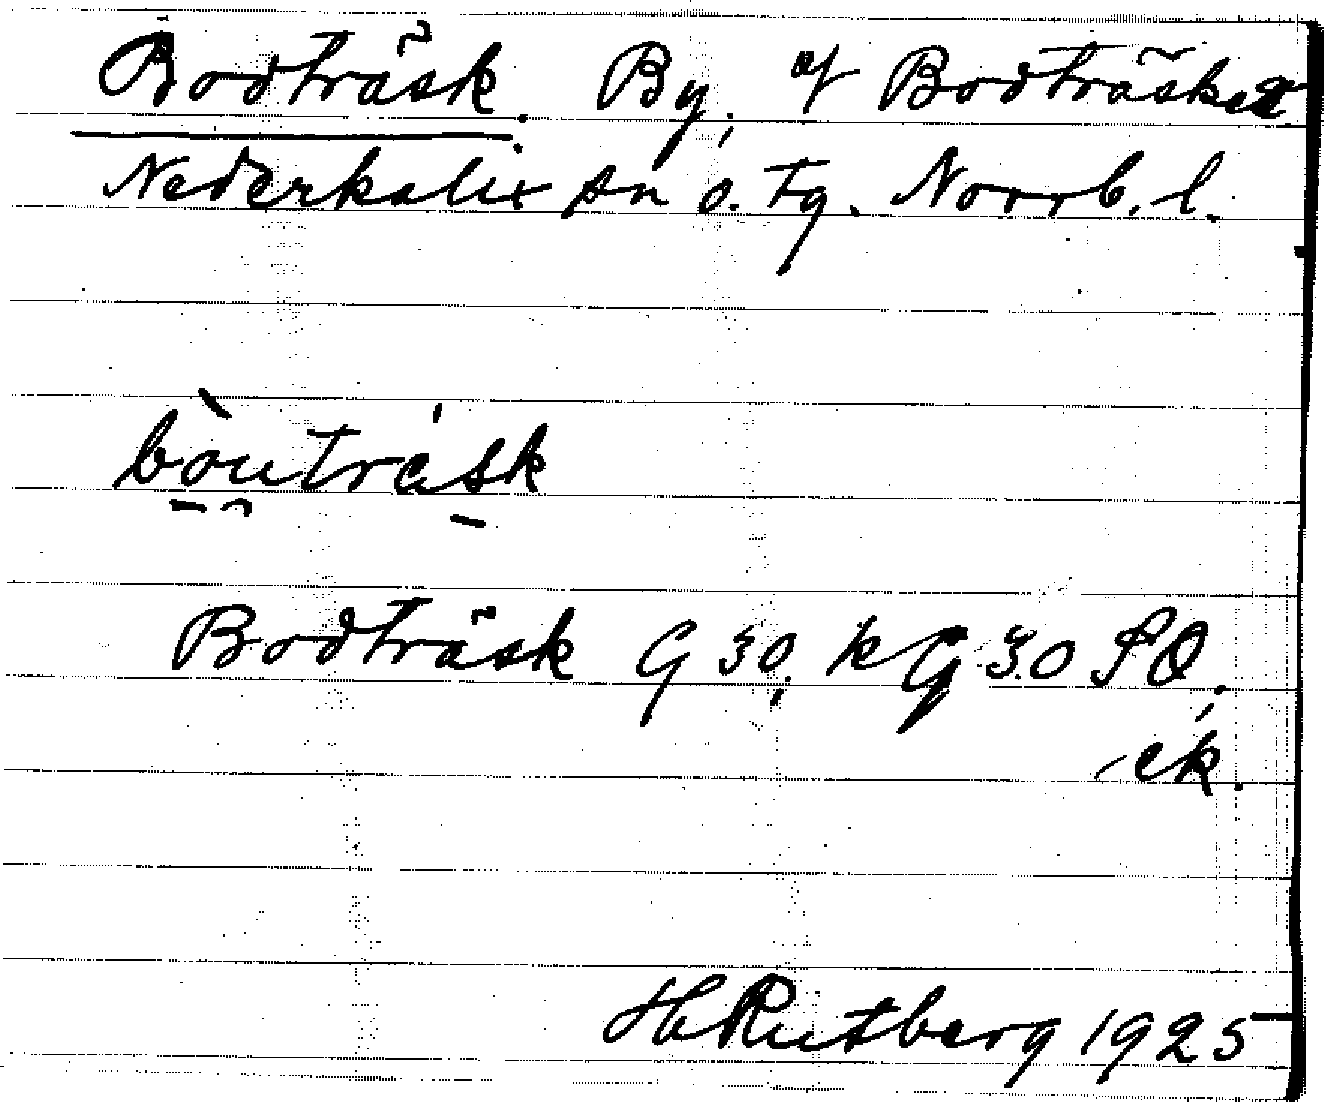 Bodträsk. By, af Bodträsket
Nederkalix sn o. tg. Norrb. l.
bòuträsk
Bodträsk G 30, k G 30 SO,
ek.
H Rutberg 1925